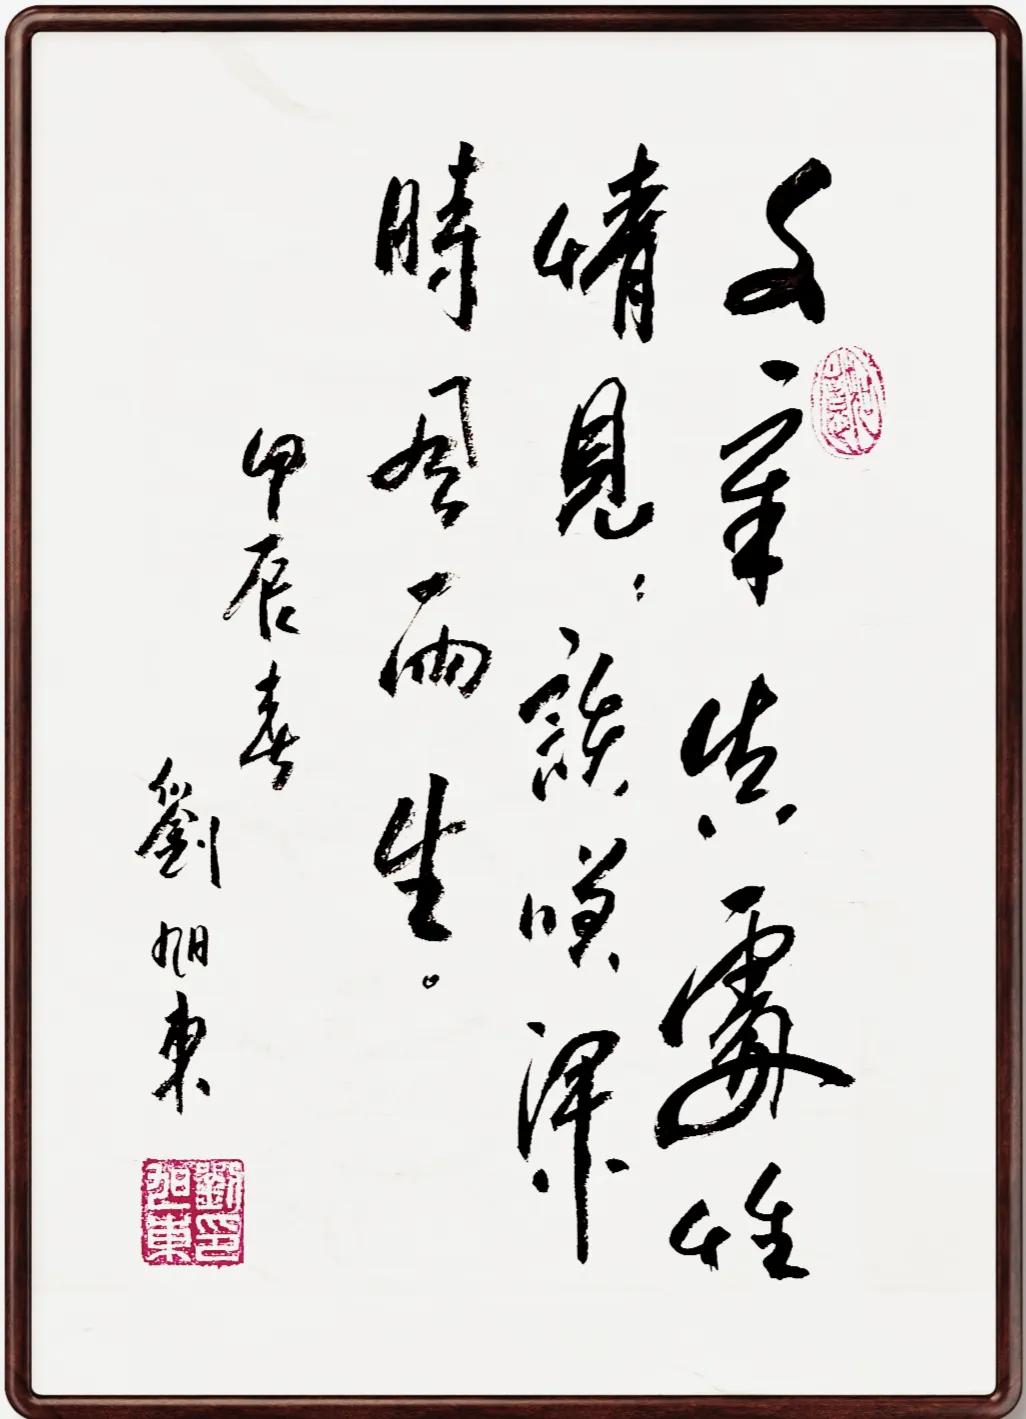 文章真處性
情見；談嘆深
時風雨生。
甲辰春
劉旭東
劉印
旭東